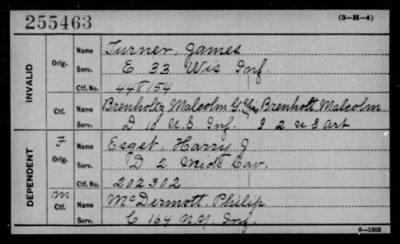 255463 (3-H-4)
INVALID
Orig. Name Turner, James
Serv. E 33 Wis Inf.
Ctf. No. 448154
Ctf. Name Brenholtz, Malcolm G. Brenholt, Malcolm
Serv. D 10 U.S. Inf. I 2 U S Art
DEPENDENT
Orig. Name Esget, Harry J
Serv. D 2 Mich Cav.
Ctf. No. 202302
m
Ctf. Name McDermott, Philip
Serv. C 164 N.Y. Inf.